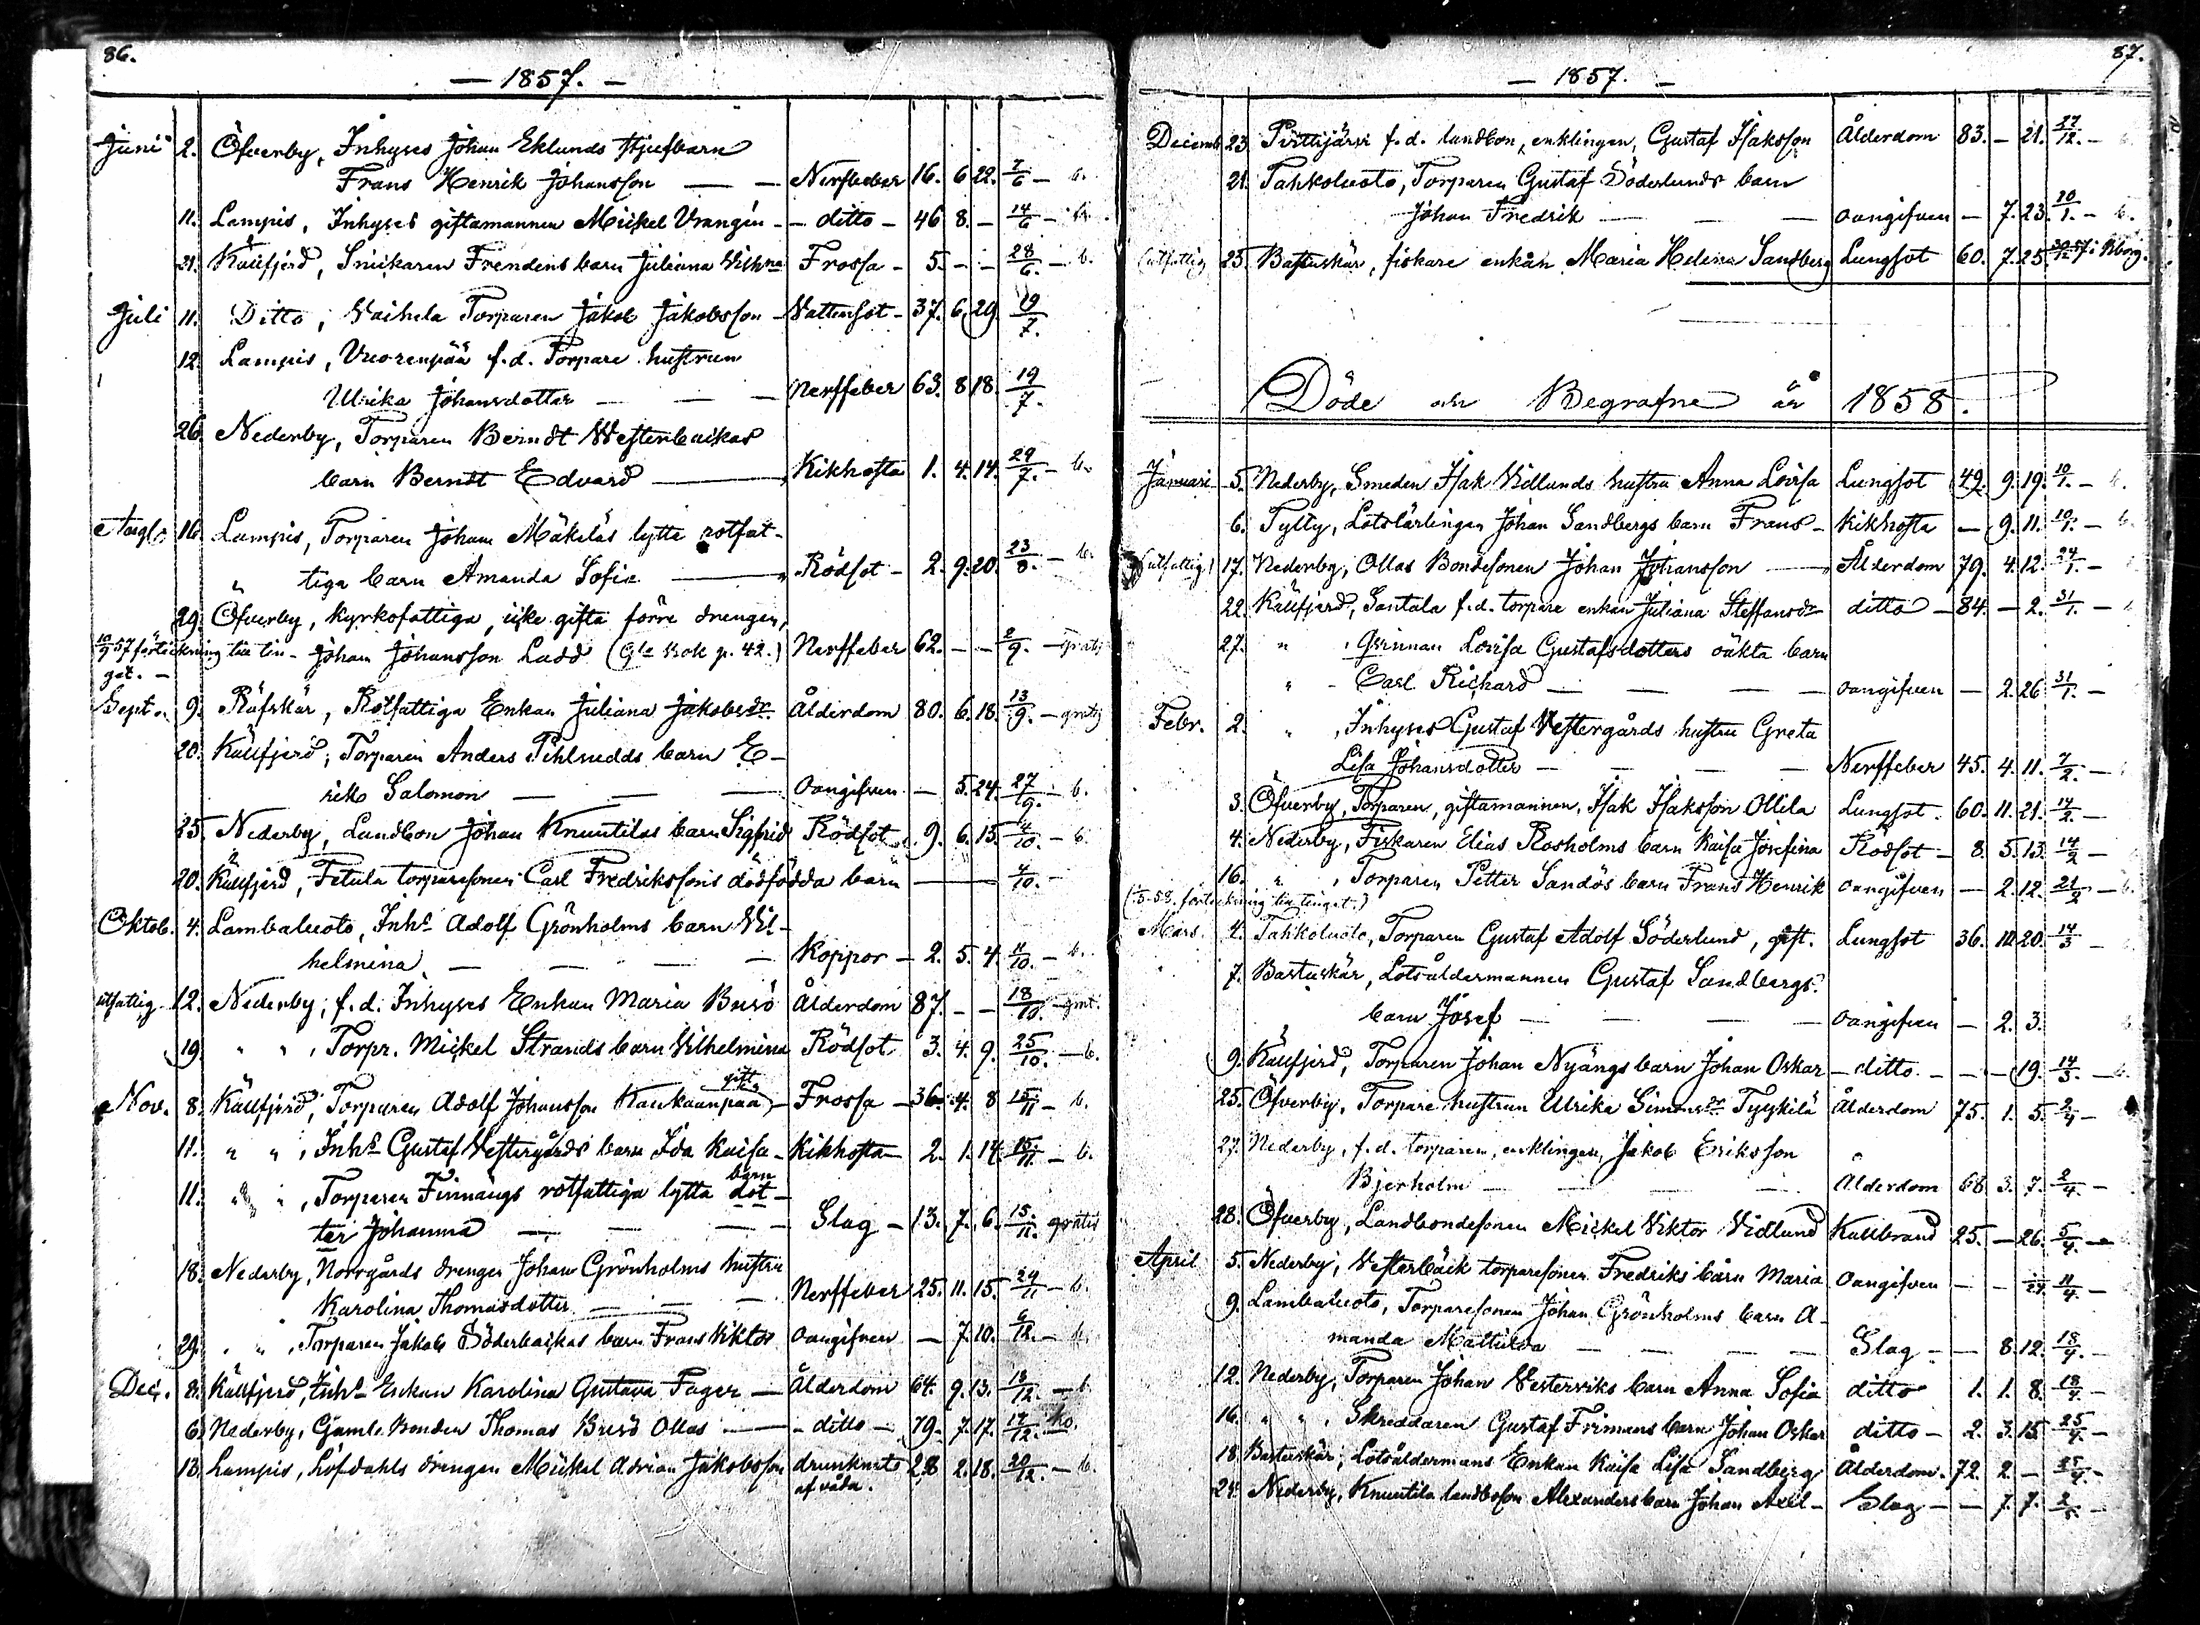 86.
— 1857. —
Juni 2. Öfverby, Inhyses Johan Eklunds styfbarn
Frans Henrik Johansson — — Nerffeber 16. 6 22. 7/6 — b.
11. Lampis, Inhyses giftamannen Mickel Vrangén — — ditto — 46 8. — 14/6 — b.
21. Källfjerd, Snickaren Frendens barn Juliana Vilhna Frossa — 5. — — 28/6. — b.
Juli 11. Ditto, Vaihela Torparen Jakob Jakobsson — Vattensot — 37. 6. 29. 19/7.
12. Lampis, Vuorenpää f.d. Torpare hustrun
Ulrika Johansdotter — — — Nerffeber 63. 8 18. 19/7.
26. Nederby, Torparen Berndt Westerbackas
barn Berndt Edvard — Kikhosta 1. 4. 14. 29/7. — b.
Aug. 16. Lampis, Torparen Johan Mäkeläs lytta rotfat-
" tiga barn Amanda Sofia — Rödsot — 2. 9. 20. 23/8. — b.
29. Öfverby, kyrkofattiga, icke gifta förre drengen,
10/9 57 förteckning till tin- Johan Johansson Ladd (Gla Bok p. 42.) Nerffeber 62. — — 2/9. — gratis
get. —
Sept. 9. Räfskär, Rotfattiga Enkan Juliana Jakobsdr. Ålderdom 80. 6. 18. 13/9. — gratis
20. Källfjerd, Torparen Anders Pihlnedds barn E-
rik Salomon — — — Oangifven — 5. 24. 27/9. — b.
25. Nederby, Landbon Johan Knuutilas barn Sigfrid Rödsot 9. 6. 15. 4/10. — b.
20. Källfjerd, Fetula torparesonen Carl Fredrikssons dödfödda barn — 4/10. —
Oktob. 4. Lambaluoto, Inhs Adolf Grönholms barn Vil-
helmina — — — — Koppor — 2. 5. 4. 11/10. — b.
utfattig 12. Nederby, f.d. Inhyses Enkan Maria Busö Ålderdom 87. — — 18/10. — grat.
19. " " , Torpr. Mickel Strands barn Vilhelmina Rödsot 3. 4. 9. 25/10. — b.
gift
Nov. 8. Källfjerd, Torparen Adolf Johansson Kaukaanpää — Frossa — 36. 4. 8 15/11 — b.
11. " " , Inhs Gustaf Vestergårds barn Ida Kaisa — Kikhosta 2. 1. 14. 15/11 — b.
barn
11. " " , Torparen Finnängs rotfattiga lytta dot-
ter Johanna — — — Slag — 13. 7. 6. 15/11. gratis
18. Nederby, Norrgårds drengen Johan Grönholms hustru
Karolina Thomasdotter — — Nerffeber 25. 11. 15. 29/11 — b.
29. " " , Torparen Jakob Söderbackas barn Frans Viktor Oangifven — 7. 10. 6/12. — b.
Dec. 8. Källfjerd, Inhs Enkan Karolina Gustava Fager — Ålderdom 64. 9. 13. 13/12. — b
6. Nederby, Gamle Bonden Thomas Busö Ollas — — ditto — 79. 7. 17. 17/12. ko.
13. Lampis, Löfdahls drengen Mickel Adrian Jakobsson drunknat 28 2. 18. 20/12. — b.
af våda.
87.
— 1857. —
Decemb. 23. Pirttijärvi f.d. landbon, enklingen, Gustaf Isaksson Ålderdom 83. — 21. 27/12. — b.
21. Tahkoluoto, Torparen Gustaf Söderlunds barn
Johan Fredrik — — — oangifven — 7. 23. 10/1. — b.
(utfattig 25. Bastuskär, fiskare enkan Maria Helena Sandberg Lungsot 60. 7. 25. i Bborg.
Döde och Begrafne år 1858.
Januari 5. Nederby, Smeden Isak Vidlunds hustru Anna Lovisa Lungsot 49. 9. 19. 10/1. — b.
6. Tyltty, Lotslärlingen Johan Sandbergs barn Frans — Kikhosta — 9. 11. 10/1. — b.
(utfattig) 17. Nederby, Ollas Bondesonen Johan Johansson — Ålderdom 79. 4. 12. 24/1. —
22. Källfjerd, Santala f.d. torpare enkan Juliana Steffansdr ditto — 84. — 2. 31/1. —
27. " , Qvinnan Lovisa Gustafsdotters oäkta barn
" — Carl Richard — — — oangifven — 2. 26. 31/1. —
Febr. 2. " , Inhyses Gustaf Vestergårds hustru Greta
Lisa Johansdotter — — Nerffeber 45. 4. 11. 7/2. —
3. Öfverby, Torparen, giftamannen, Isak Isaksson Ollila Lungsot. 60. 11. 21. 14/2. —
4. Nederby, Fiskaren Elias Rosholms barn Kaisa Josefina Rödsot — 8. 5. 13. 14/2 —
16. " , Torparen Petter Sandös barn Frans Henrik oangifven — 2. 12. 21/2 — b.
förteckning till tinget.)
Mars 4. Tahkoluoto, Torparen Gustaf Adolf Söderlund, gift. Lungsot 36. 10. 20. 14/3 —
7. Bastuskär, Lotsåldermannen Gustaf Sandbergs
barn Josef — — — oangifven — 2. 3.
9. Källfjerd, Torparen Johan Nyängs barn Johan Oskar — ditto. — — — 19. 14/3. —
25. Öfverby, Torpare hustrun Ulrika Simonsdr Tyyskilä Ålderdom 75. 1. 5. 2/4 —
27. Nederby, f.d. torparen, enklingen, Jakob Eriksson
Bjerholm — — — Ålderdom 68 3. 7. 2/4. —
28. Öfverby, Landbondesonen Mickel Viktor Vidlund Kallbrand 25. — 26. 5/4. —
April 5. Nederby, Vesterbäck torparesonen Fredriks barn Maria Oangifven — — 24. 11/4. —
9. Lambaluoto, Torparesonen Johan Grönholms barn A-
manda Mattilda — — — Slag — — 8. 12. 18/4. —
12. Nederby, Torparen Johan Vesterviks barn Anna Sofia ditto 1. 1. 8. 18/4. —
16. " " , Skreddaren Gustaf Frimans barn Johan Oskar ditto — 2. 3. 15. 25/4. —
18. Bastuskär, Lotsåldermans Enkan Kaisa Lisa Sandberg Ålderdom. 72. 2. — 25/4. —
24. Nederby, Knuutila landboson Alexanders barn Johan Axel — Slag — — 7. 7. 2/5. —